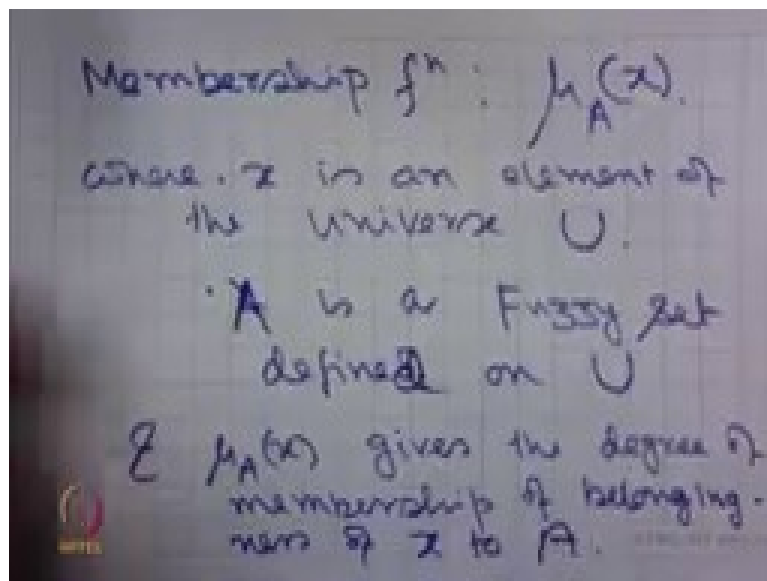 Membership fⁿ : μ_A(x).
where · x is an element of
the universe U.
· A is a Fuzzy set
defined on U
& μ_A(x) gives the degree of
membership of belonging-
ness of x to A.
NPTEL